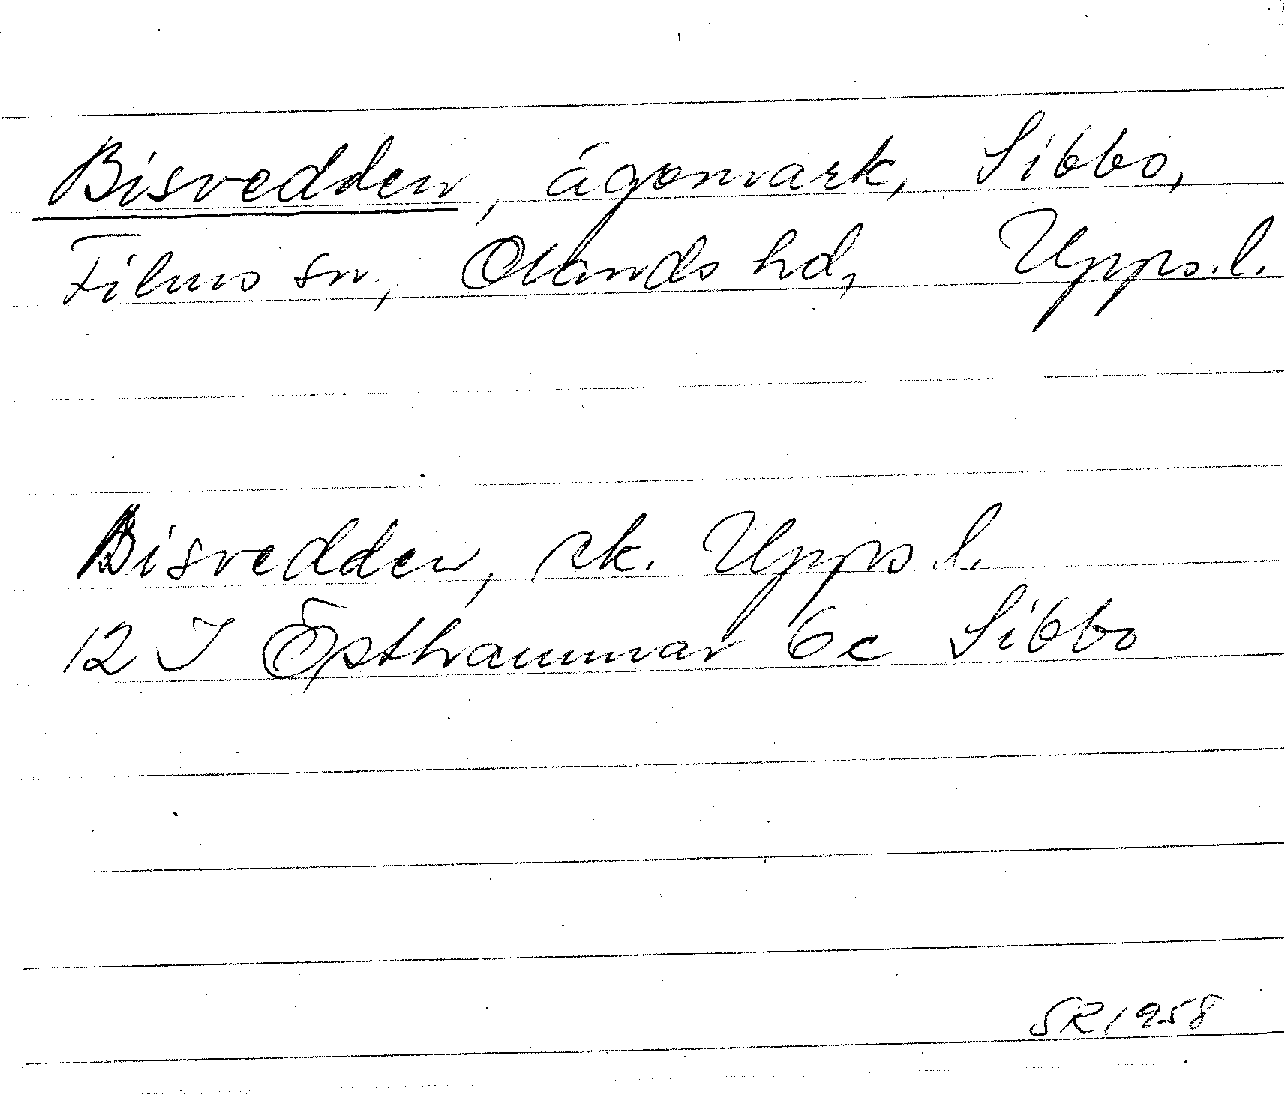 Bisvedden, ägomark, Sibbo,
Films sn, Olands hd, Upps.l.
Bisvedden, ek. Upps.l.
12 I Östhammar 6c Sibbo
SR 1958